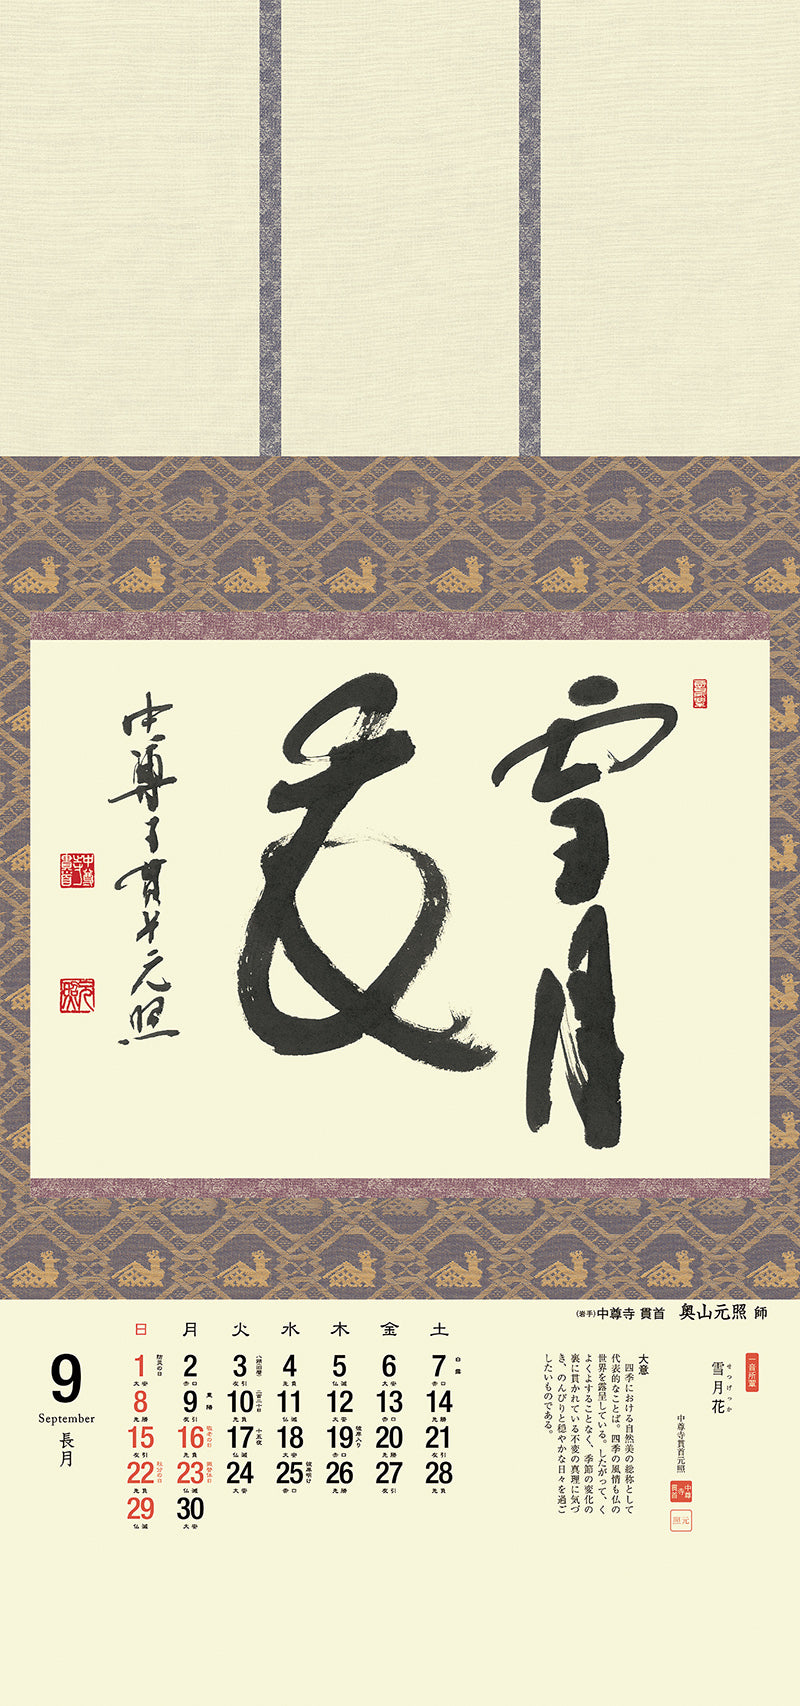 雪月
花
中尊寺貫首元照
中尊寺貫首
元照
(岩手)中尊寺 貫首 奥山元照 師
一音所翠
せつげっか
雪月花
中尊寺貫首元照
中尊寺貫首
元照
大意
四季における自然美の総称として
代表的なことば。四季の風情も仏の
世界を露呈している。したがって、く
よくよすることなく、季節の変化の
裏に貫かれている不変の真理に気づ
き、のんびりと穏やかな日々を過ご
したいものである。
9
September
長月
日 月 火 水 木 金 土
1 防災の日 2 3 4 5 6 7 白露
大安 赤口 友引 先負 仏滅 大安 赤口
8 9 重陽 10 二百二十日 11 12 13 14
先勝 友引 先負 仏滅 大安 赤口 先勝
15 16 敬老の日 17 十五夜 18 19 彼岸入り 20 21
友引 先負 仏滅 大安 赤口 先勝 友引
22 秋分の日 23 振替休日 24 25 彼岸明け 26 27 28
先負 仏滅 大安 赤口 先勝 友引 先負
29 30
仏滅 大安